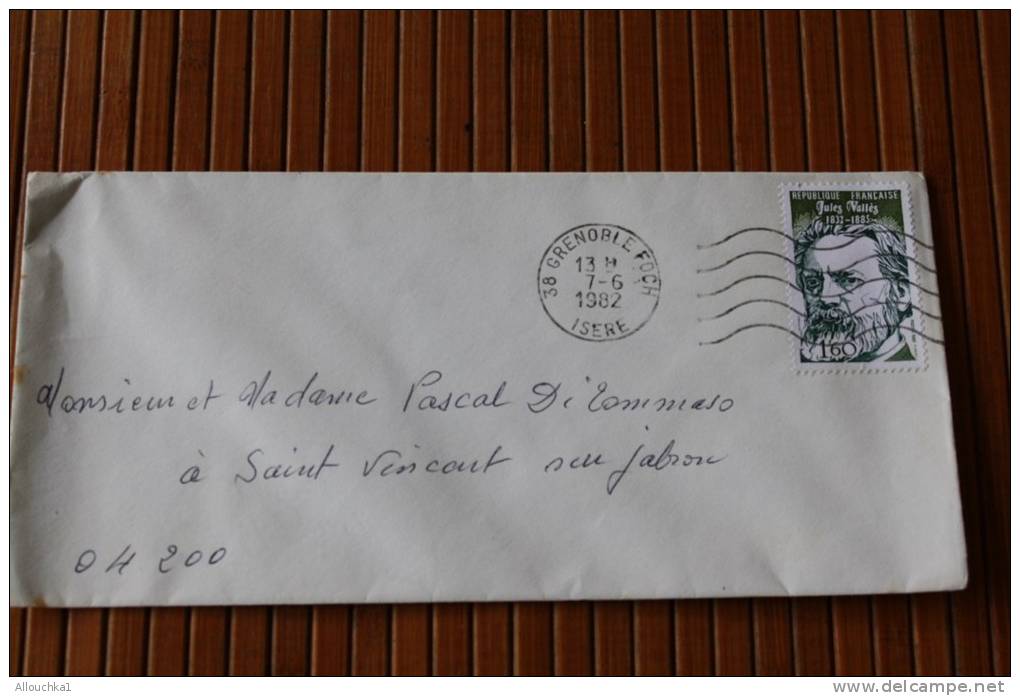 REPUBLIQUE FRANÇAISE
Jules Vallès
1832-1885
38 GRENOBLE FOCH
13 H
7-6
1982
ISERE
1,60
Monsieur et Madame Pascal Di Tommaso
à Saint Vincent sur jabron
04 200
Allouchka1
www.delcampe.net